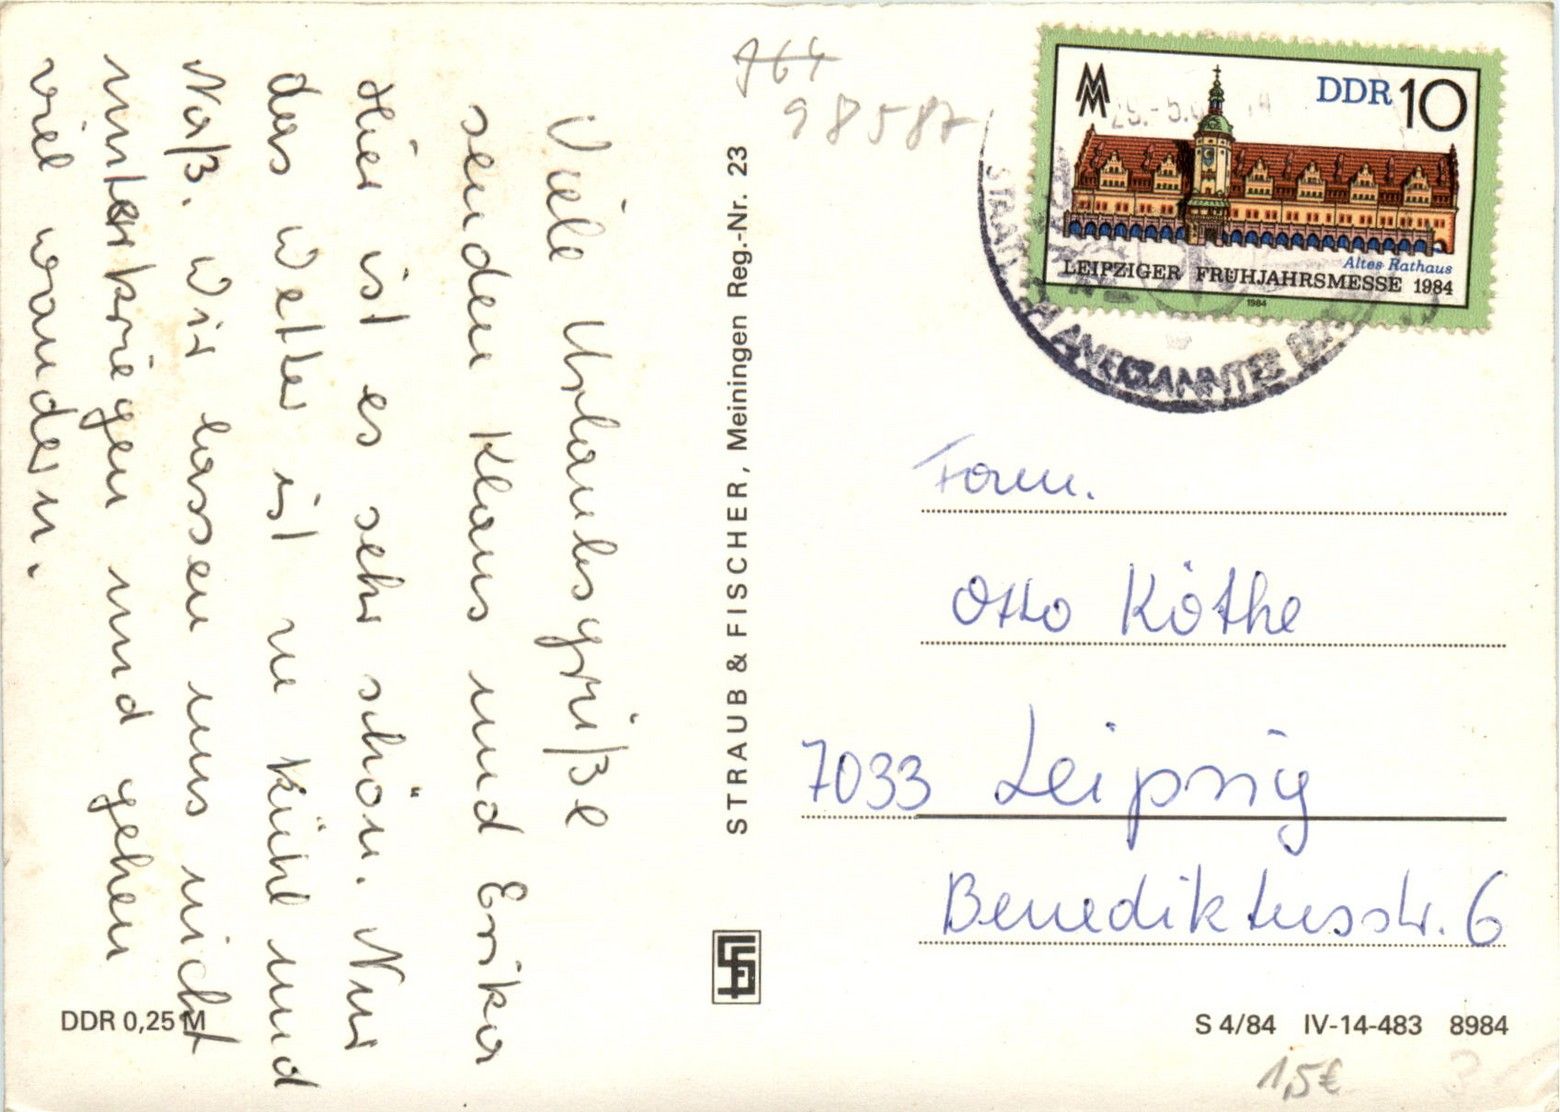 Viele Urlaubsgrüße
senden Klaus und Erika
Hier ist es sehr schön. Nur
das Wetter ist zu kühl und
Naß. Wir lassen uns nicht
unterkriegen und gehen
viel wandern.
DDR 0,25 M
STRAUB & FISCHER, Meiningen Reg.-Nr. 23
964
98587
DDR 10
Altes Rathaus
LEIPZIGER FRÜHJAHRSMESSE 1984
1984
STAATLICH ANERKANNTER
Fam.
Otto Köthe
7033 Leipzig
Benediktusstr. 6
S 4/84 IV-14-483 8984
1,5€